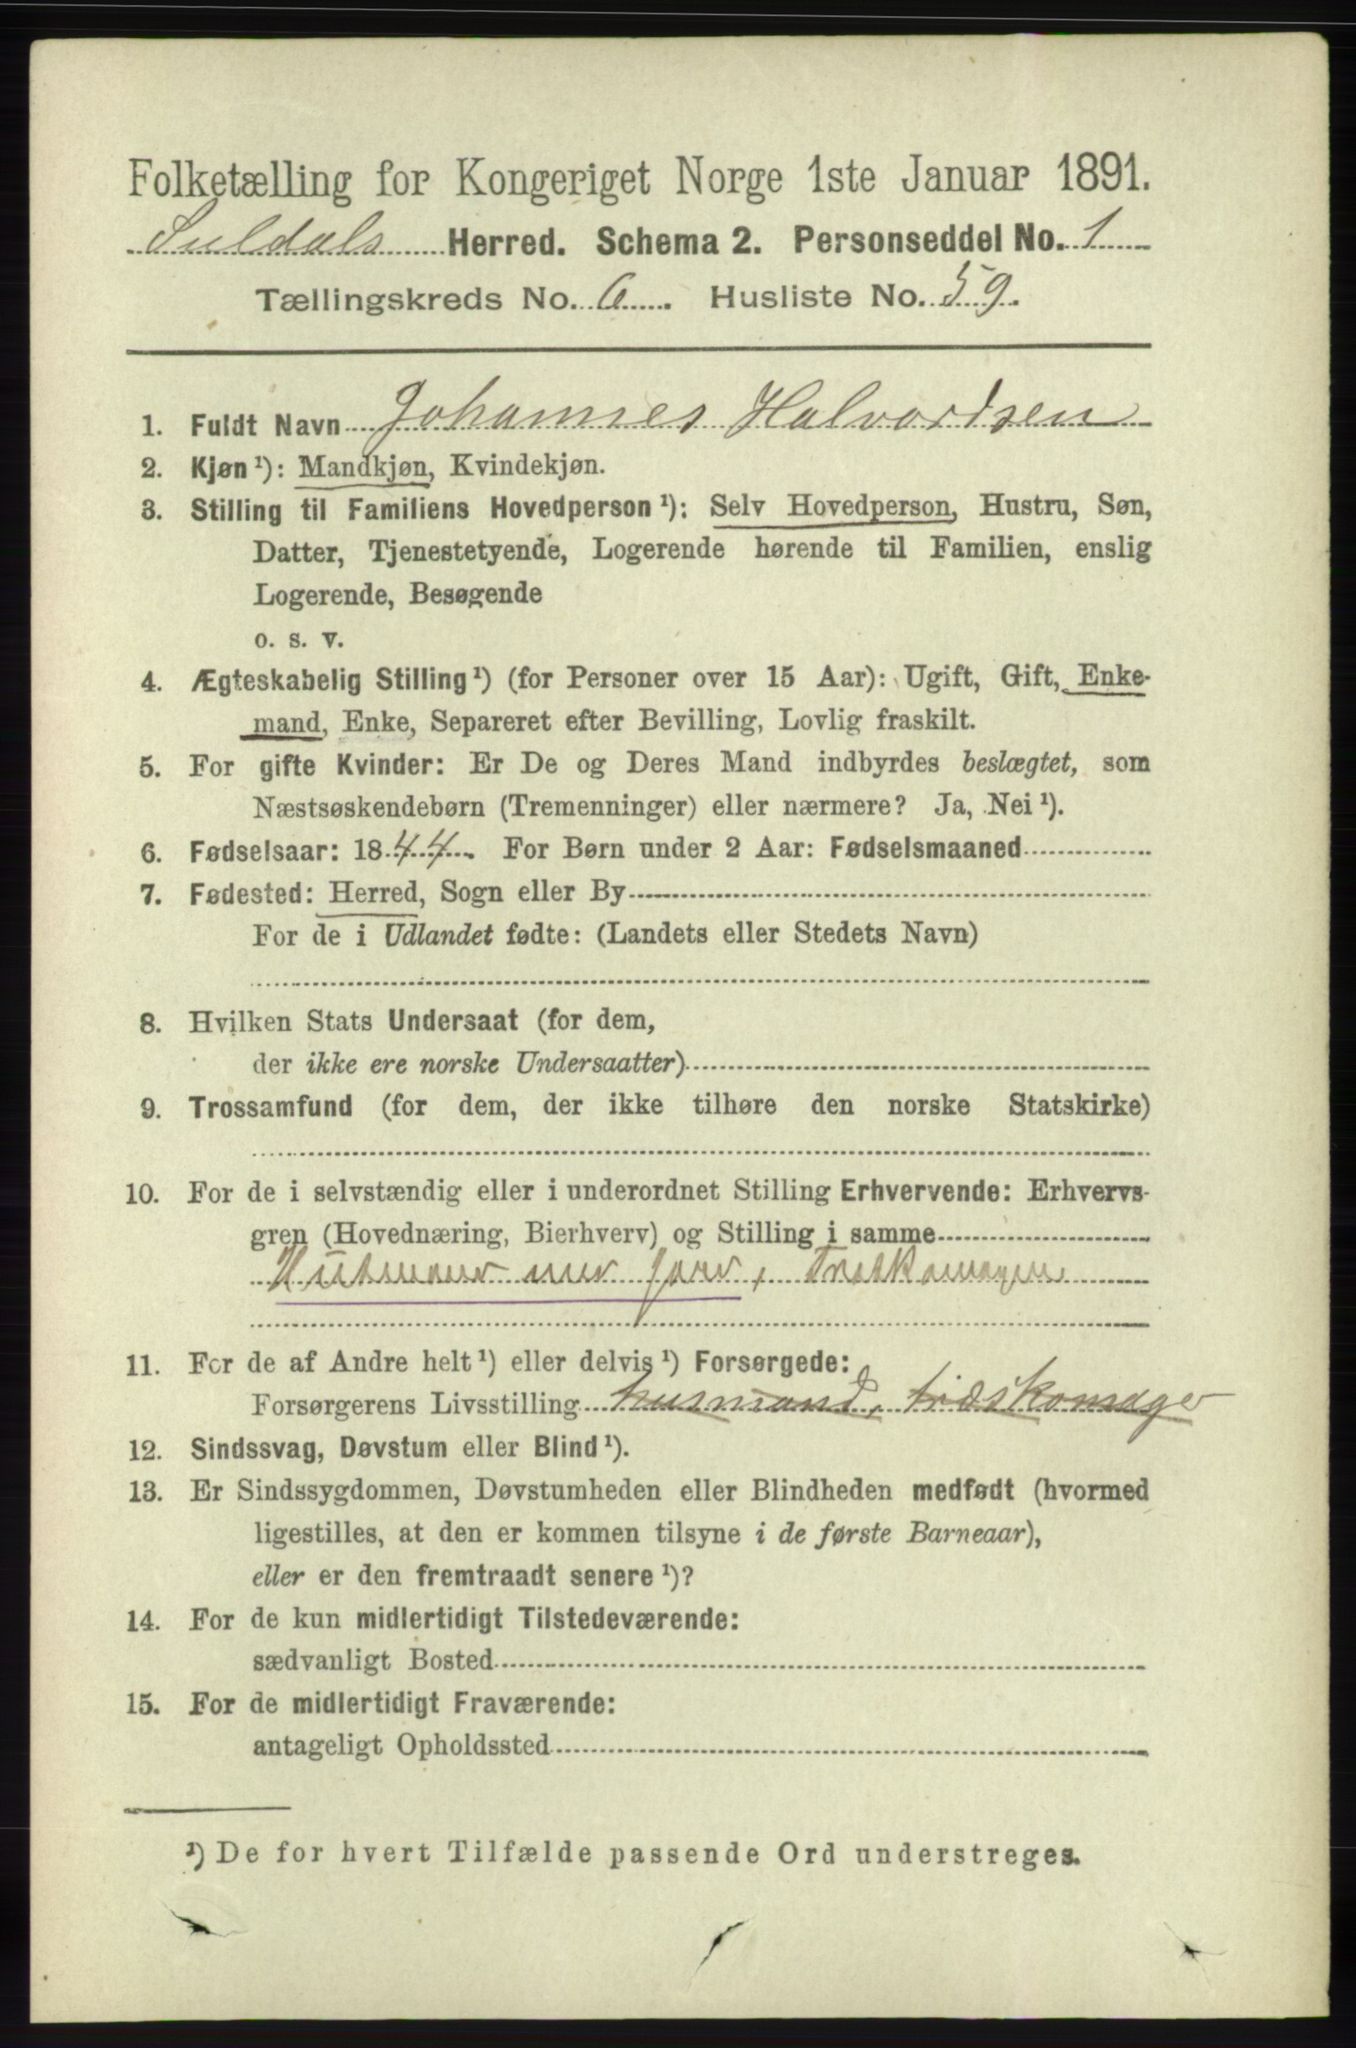 Folketælling for Kongeriget Norge 1ste Januar 1891.
Suldals Herred. Schema 2. Personseddel No. 1
Tællingskreds No. 6. Husliste No. 59.
1. Fuldt Navn Johannes Halvordsen
2. Kjøn ¹): Mandkjøn, Kvindekjøn.
3. Stilling til Familiens Hovedperson ¹): Selv Hovedperson, Hustru, Søn,
Datter, Tjenestetyende, Logerende hørende til Familien, enslig
Logerende, Besøgende
o. s. v.
4. Ægteskabelig Stilling ¹) (for Personer over 15 Aar): Ugift, Gift, Enke-
mand, Enke, Separeret efter Bevilling, Lovlig fraskilt.
5. For gifte Kvinder: Er De og Deres Mand indbyrdes beslægtet, som
Næstsøskendebørn (Tremenninger) eller nærmere? Ja, Nei ¹).
6. Fødselsaar: 1844. For Børn under 2 Aar: Fødselsmaaned
7. Fødested: Herred, Sogn eller By
For de i Udlandet fødte: (Landets eller Stedets Navn)
8. Hvilken Stats Undersaat (for dem,
der ikke ere norske Undersaatter)
9. Trossamfund (for dem, der ikke tilhøre den norske Statskirke)
10. For de i selvstændig eller i underordnet Stilling Erhvervende: Erhvervs-
gren (Hovednæring, Bierhverv) og Stilling i samme
Husmand med jord,
11. For de af Andre helt ¹) eller delvis ¹) Forsørgede:
Forsørgerens Livsstilling husmand, træskomager
12. Sindssvag, Døvstum eller Blind ¹).
13. Er Sindssygdommen, Døvstumheden eller Blindheden medfødt (hvormed
ligestilles, at den er kommen tilsyne i de første Barneaar),
eller er den fremtraadt senere ¹)?
14. For de kun midlertidigt Tilstedeværende:
sædvanligt Bosted
15. For de midlertidigt Fraværende:
antageligt Opholdssted
¹) De for hvert Tilfælde passende Ord understreges.